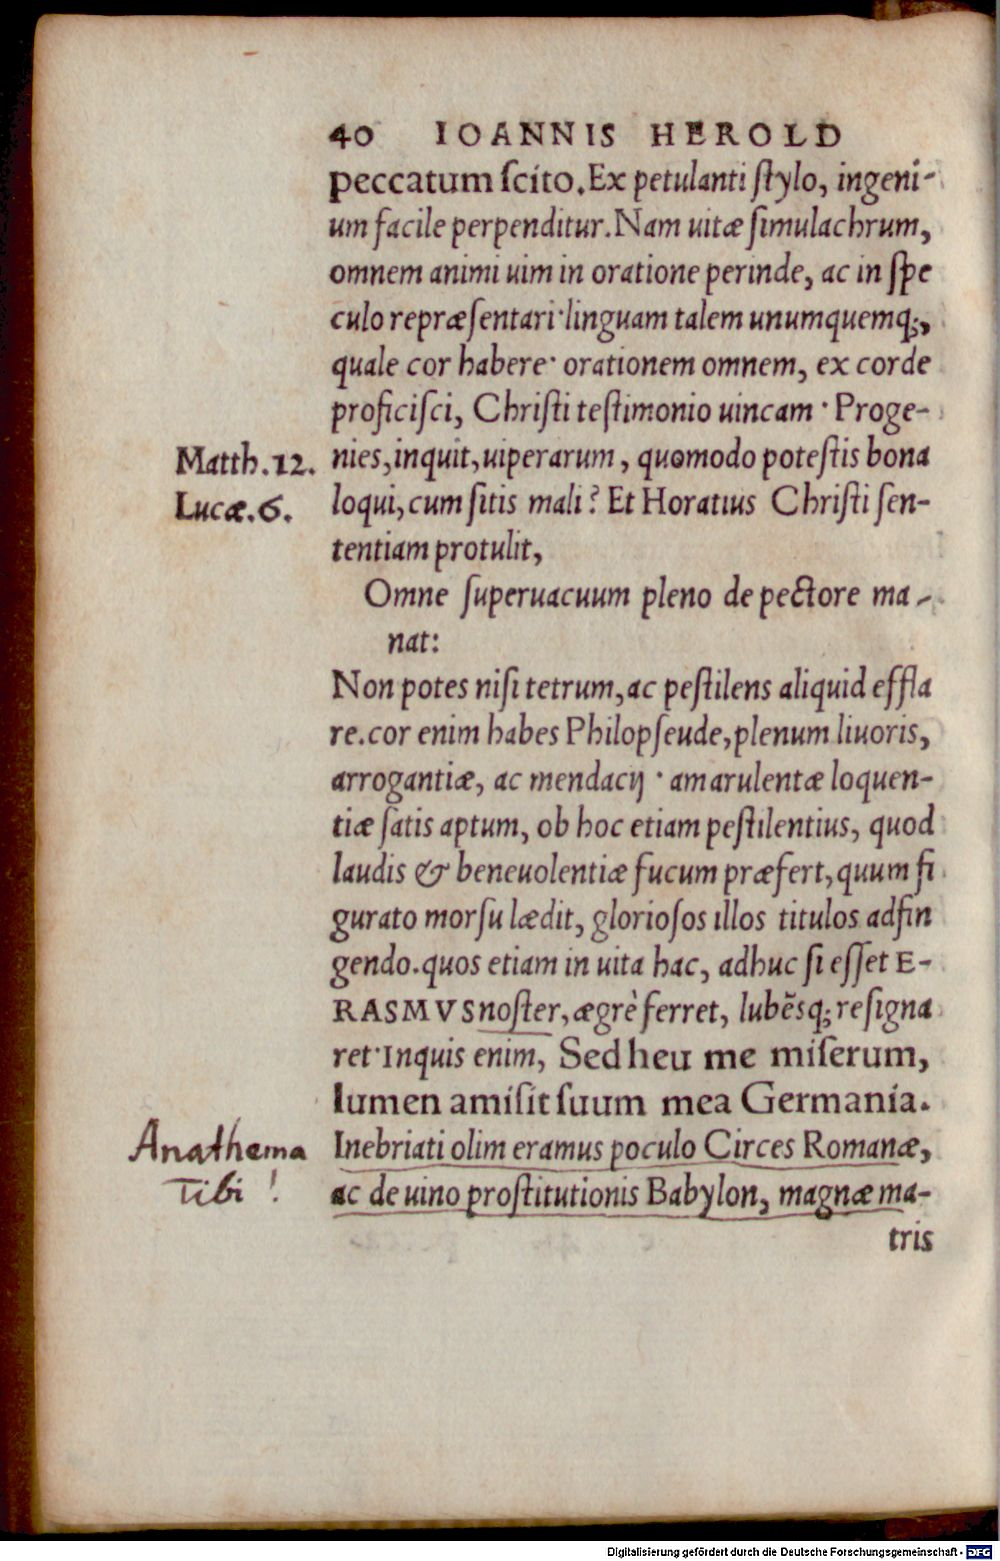 40 IOANNIS HEROLD
peccatum ſcito. Ex petulanti ſtylo, ingeni-
um facile perpenditur. Nam uitæ ſimulachrum,
omnem animi uim in oratione perinde, ac in ſpe
culo repræſentari· linguam talem unumquemq;,
quale cor habere· orationem omnem, ex corde
proficiſci, Chriſti teſtimonio uincam· Proge-
Matth.12. nies, inquit, uiperarum, quomodo poteſtis bona
Lucæ.6. loqui, cum ſitis mali? Et Horatius Chriſti ſen-
tentiam protulit,
Omne ſuperuacuum pleno de pectore ma-
nat:
Non potes niſi tetrum, ac peſtilens aliquid effla
re. cor enim habes Philopſeude, plenum liuoris,
arrogantiæ, ac mendacij· amarulentæ loquen-
tiæ ſatis aptum, ob hoc etiam peſtilentius, quod
laudis & beneuolentiæ fucum præfert, quum fi
gurato morſu lædit, glorioſos illos titulos adfin
gendo. quos etiam in uita hac, adhuc ſi eſſet E-
RASMVS noſter, ægrè ferret, lubẽsq; reſigna
ret· Inquis enim, Sed heu me miſerum,
lumen amiſit ſuum mea Germania.
Anathema Inebriati olim eramus poculo Circes Romanæ,
Tibi! ac de uino proſtitutionis Babylon, magnæ ma-
tris
Digitalisierung gefördert durch die Deutsche Forschungsgemeinschaft - DFG